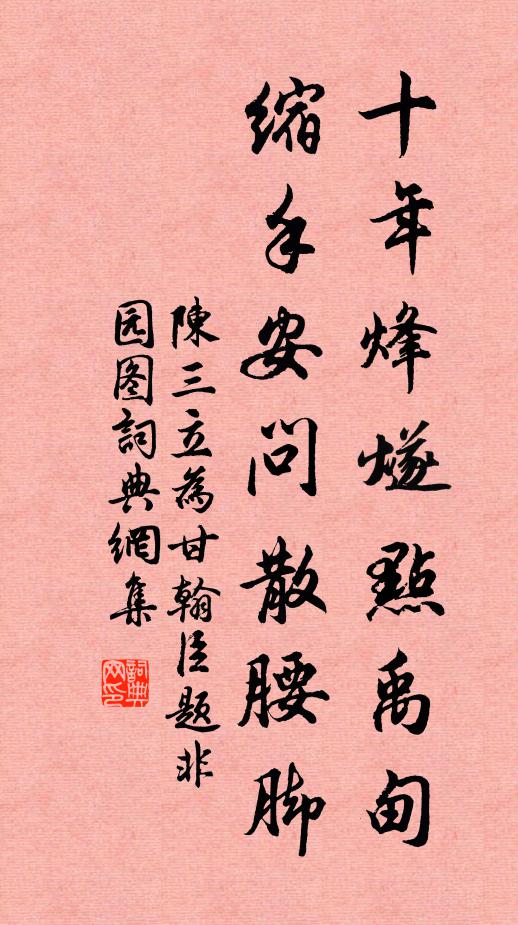 十年烽燧點禹甸
縮手安問散腰脚
陳三立為甘翰臣題非
园图詞典網集
詞典网印